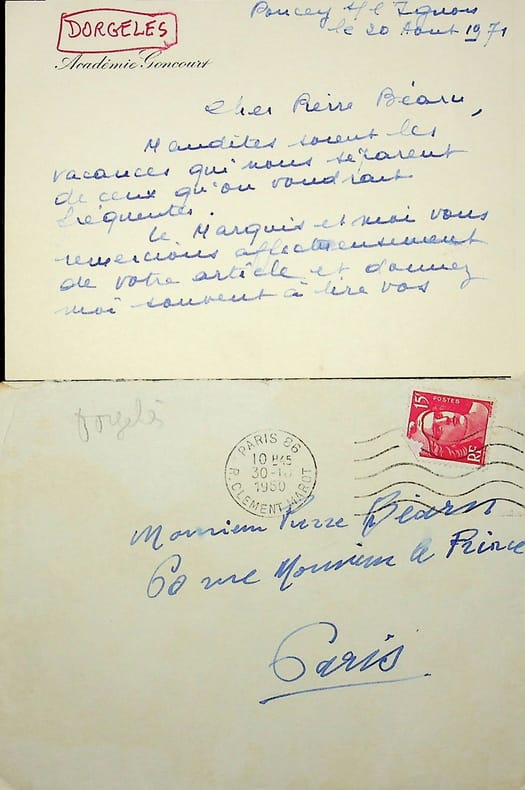 DORGELÈS
Académie Goncourt
le 20 Août 1971
Cher Pierre Béarn,
Maudites soient les
vacances qui nous séparent
de ceux qu'on voudrait
fréquenter.
Le Marquis et moi vous
remercions affectueusement
de votre article et donnez
moi souvent à lire vos
Dorgelès
POSTES
15F
RF
PARIS 86
10 H45
1950
R. CLEMENT MAROT
Monsieur Pierre Béarn
60 rue Monsieur le Prince
Paris